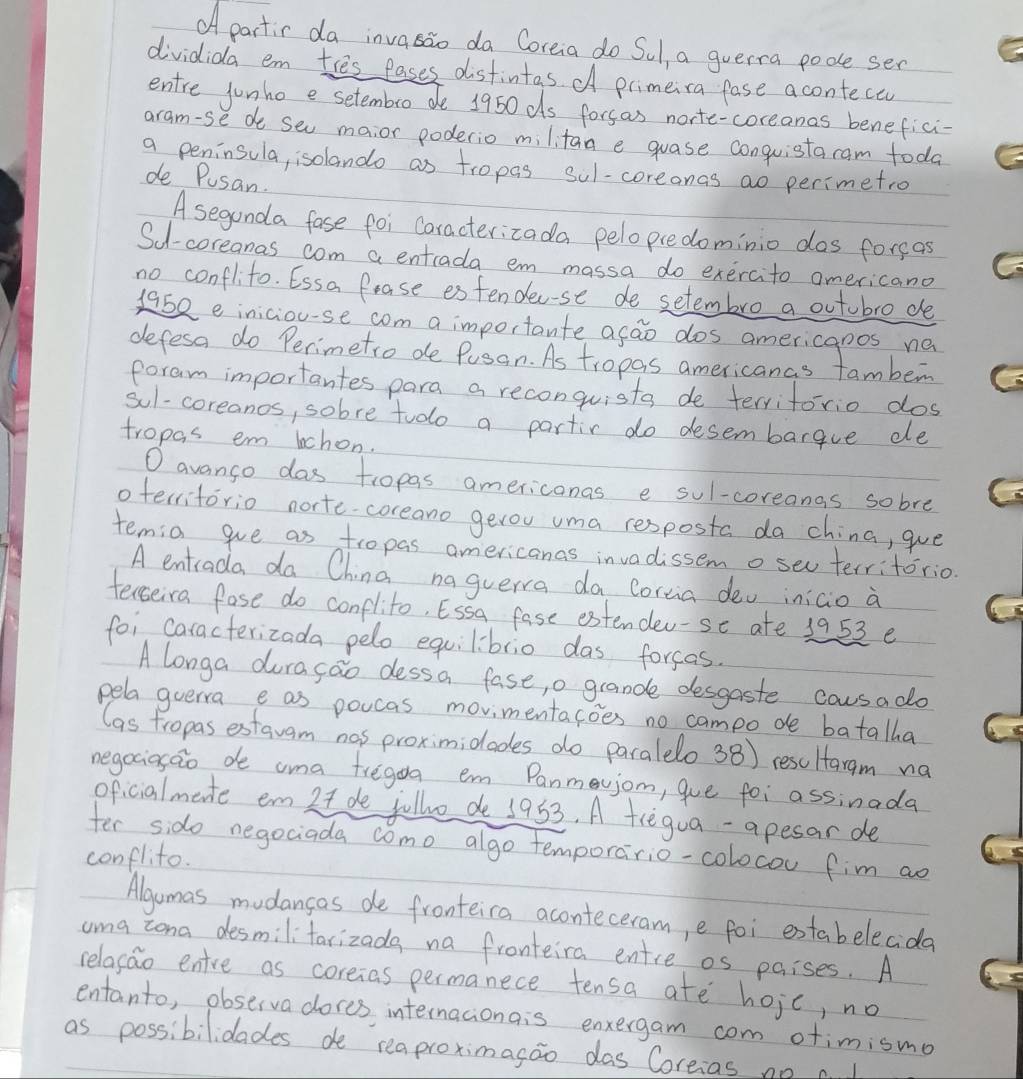 A partir da invasão da Coreia do Sul, a guerra pode ser
dividida em três fases distintas. A primeira fase aconteceu
entre junho e setembro de 1950 As forças norte-coreanas benefici-
aram-se de seu maior poderio militan e quase conquistaram toda
a península, isolando as tropas sul-coreanas ao perímetro
de Pusan.
A segunda fase foi caracterizada pelo predomínio das forças
Sul-coreanas com a entrada em massa do exército americano
no conflito. Essa frase estendeu-se de setembro a outubro de
1950 e iniciou-se com a importante ação dos americanos na
defesa do Perimetro de Pusan. As tropas americanas tambem
foram importantes para a reconquista de território dos
sul-coreanos, sobre tudo a partir do desembarque de
tropas em Ichon.
O avanço das tropas americanas e sul-coreanas sobre
o território norte-coreano gerou uma resposta da china, que
temia que as tropas americanas invadissem o seu território.
A entrada da China na guerra da Coreia deu início à
terceira fase do conflito. Essa fase estendeu-se ate 1953 e
foi caracterizada pelo equilíbrio das forças.
A longa duração dessa fase, o grande desgaste causado
pela guerra e as poucas movimentações no campo de batalha
(as tropas estavam nas proximidades do paralelo 38) resultaram na
negociação de uma trégua em Panmoujom, que foi assinada
oficialmente em 27 de julho de 1953. A trégua - apesar de
ter sido negociada como algo temporário - colocou fim ao
conflito.
Algumas mudanças de fronteira aconteceram, e foi estabelecida
uma zona desmilitarizada na fronteira entre os países. A
relação entre as coreias permanece tensa até hoje, no
entanto, observadores internacionais enxergam com otimismo
as possibilidades de reaproximação das Coreias no